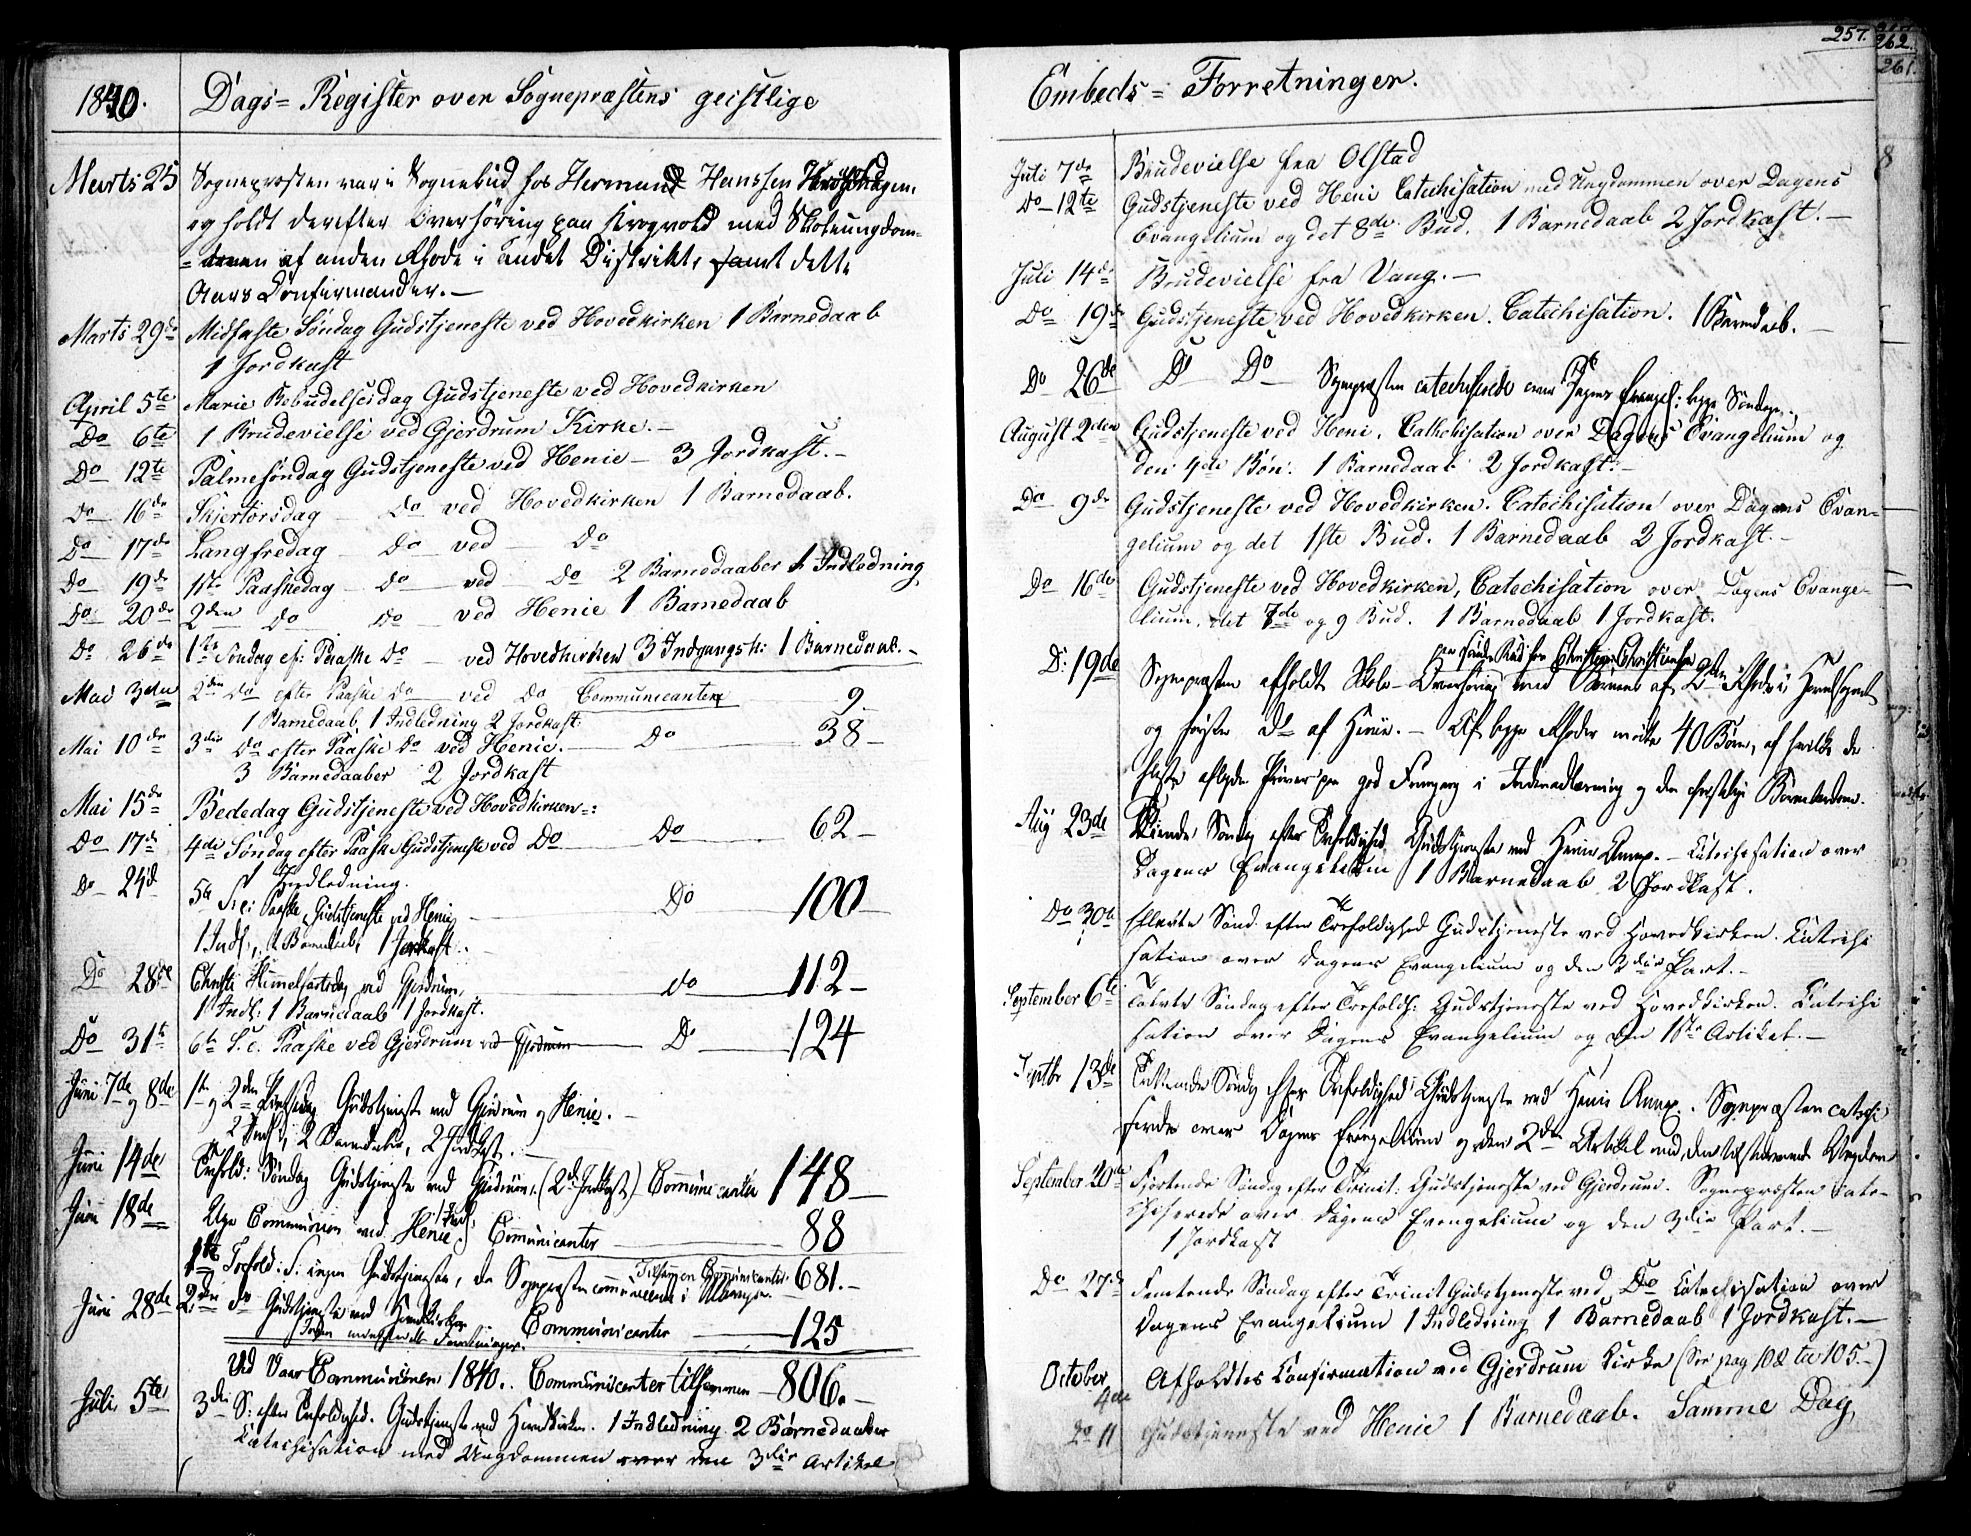 1840. Dags= Register over Sognepræstens geistlige
Marts 25 Sognepræsten var i Sognebud hos Hermand Hanssen
og holdt derefter Overhøring paa Krogvold med Skoleungdom-
af anden Rhode i andet Distrikt, samt dette
Aars Confirmander.—
Marts 29de Midfaste Søndag Gudstjeneste ved Hovedkirken 1 Barnedaab
1 Jordkast
April 5te Marie Bebudelsesdag Gudstjeneste ved Hovedkirken
Do 6te 1 Brudevielse ved Gjerdrum Kirke.—
Do 12te Palmesøndag Gudstjeneste ved Henie — 3 Jordkast.—
Do 16de Skjertorsdag — Do ved Hovedkirken 1 Barnedaab.
Do 17de Langfredag — Do — ved — Do
Do 19de 1ste Paaskedag — Do — ved — Do 2 Barnedaaber 1 Indledning
Do 20de 2den Do — Do — ved Henie 1 Barnedaab
Do 26de 1ste Søndag ef: Paaske Do — ved Hovedkirken 3 Indgangsk: 1 Barnedaab.—
Mai 3den 2den Do efter Paaske Do — ved Do Communicanter 9.
1 Barnedaab, 1 Indledning 2 Jordkast
Mai 10de 3die Do efter Paaske Do ved Henie.— Do — 38—
3 Barnedaaber 2 Jordkast
Mai 15de Bededag Gudstjeneste ved Hovedkirken
Do 17de 4de Søndag efter Paaske Gudstjeneste ved Do — Do — 62—
1 Indledning.
Do 24d 5te S. e: Paaske, Gudstjeneste ved Henie — Do — 100—
1 Indl., 1 Barnedaab, 1 Jordkast.
Do 28de Christi Himmelfartsdag ved Gjerdrum, — Do — 112—
1 Indl: 1 Barnedaab 1 Jordkast.
Do 31te 6te S. e. Paaske ved Gjerdrum ved Gjerdrum — Do — 124
Juni 7de og 8de 1ste og 2den Pintsedag Gudstjeneste ved Gjerdrum og Henie.—
2 Indl:, 2 Barnedaaber, 2 Jordkast.—
Juni 14de Trefold: Søndag Gudstjeneste ved Gjerdrum, (2de Jordkast) Communicanter 148—
Juni 18de Uge Communion ved Henie, 1 Indl: Communicanter — 88
1ste Trefold: S: ingen Gudstjeneste, da Sognepræsten
Tilsammen Communicanter 681.—
Juni 28de 2den do Gudstjeneste ved Hovedkirken Communicanter — 125
Ved Vaar Communionen 1840. Communicanter tilsammen — 806.—
Juli 5te 3die S: efter Trefoldighed. Gudstjeneste ved Hovedkirken. 1 Indledning 2 Barnedaaber
Catechisation med Ungdommen over den 3die Artikel
257. 262.
261.
Embeds= Forretninger.
Juli 7de Brudevielse fra Olstad
Do — 12te Gudstjeneste ved Heni Catechisation med Ungdommen over Dagens
Evangelium og det 8de Bud. 1 Barnedaab 2 Jordkast.—
Juli 14de Brudevielse fra Vang.—
Do 19de Gudstjeneste ved Hovedkirken. Catechisation. 1 Barnedaab.—
Do 26de Do — Do — Sognepræsten catechiserede over Dagens Evangel: begge Søndage.
August 2den Gudstjeneste ved Heni. Cathechisation over Dagens Evangelium og
den 4de Bøn. 1 Barnedaab 2 Jordkast.—
Do 9de Gudstjeneste ved Hovedkirken. Catechisation over Dagens Evan=
gelium og det 1ste Bud. 1 Barnedaab 2 Jordkast.—
Do 16de Gudstjeneste ved Hovedkirken, Catechisation over Dagens Evange-
lium, det 7de og 9 Bud. 1 Barnedaab 1 Jordkast.
D: 19de Sognepræsten afholdt Skole-Overhøring med Børnene af 2den Rhode i Hovedsognet
og første Do af Henie.— Af begge Rhoder mødte 40 Børn, af hvilke de
fleste aflagde Prøver paa god Fremgang i Indenadlæsning og den christelige Børnelærdom.
Aug 23de Tiende Søndag efter Trefoldighed, Gudstjeneste ved Henie Annex.— Catechisation over
Dagens Evangelium 1 Barnedaab 2 Jordkast.
Do 30te Ellevte Sønd. efter Trefoldighed Gudstjeneste ved Hovedkirken. Catechi
sation over Dagens Evangelium og den 3die Part.—
September 6te Tolvte Søndag efter Trefoldh: Gudstjeneste ved Hovedkirken. Catechi
sation over Dagens Evangelium og den 1ste Artikel.—
Septbr 13de Trettende Søndag efter Trefoldighed Gudstjeneste ved Henie Annex. Sognepræsten catechi-
serede over Dagens Evangelium og den 2den Artikel med den tilstedeværende Ungdom
September 20de Fjortende Søndag efter Trinit: Gudstjeneste ved Gjerdrum. Sognepræsten cate-
chiserede over Dagens Evangelium og den 3die Part.—
1 Jordkast
Do 27de Femtende Søndag efter Trinit Gudstjeneste ved Do Catechisation over
Dagens Evangelium 1 Indledning 1 Barnedaab 1 Jordkast.—
October 4de Afholdtes Confirmation ved Gjerdrum Kirke (See pag 102 til 105.—)
Do 11 Gudstjeneste ved Henie 1 Barnedaab. Samme Dag